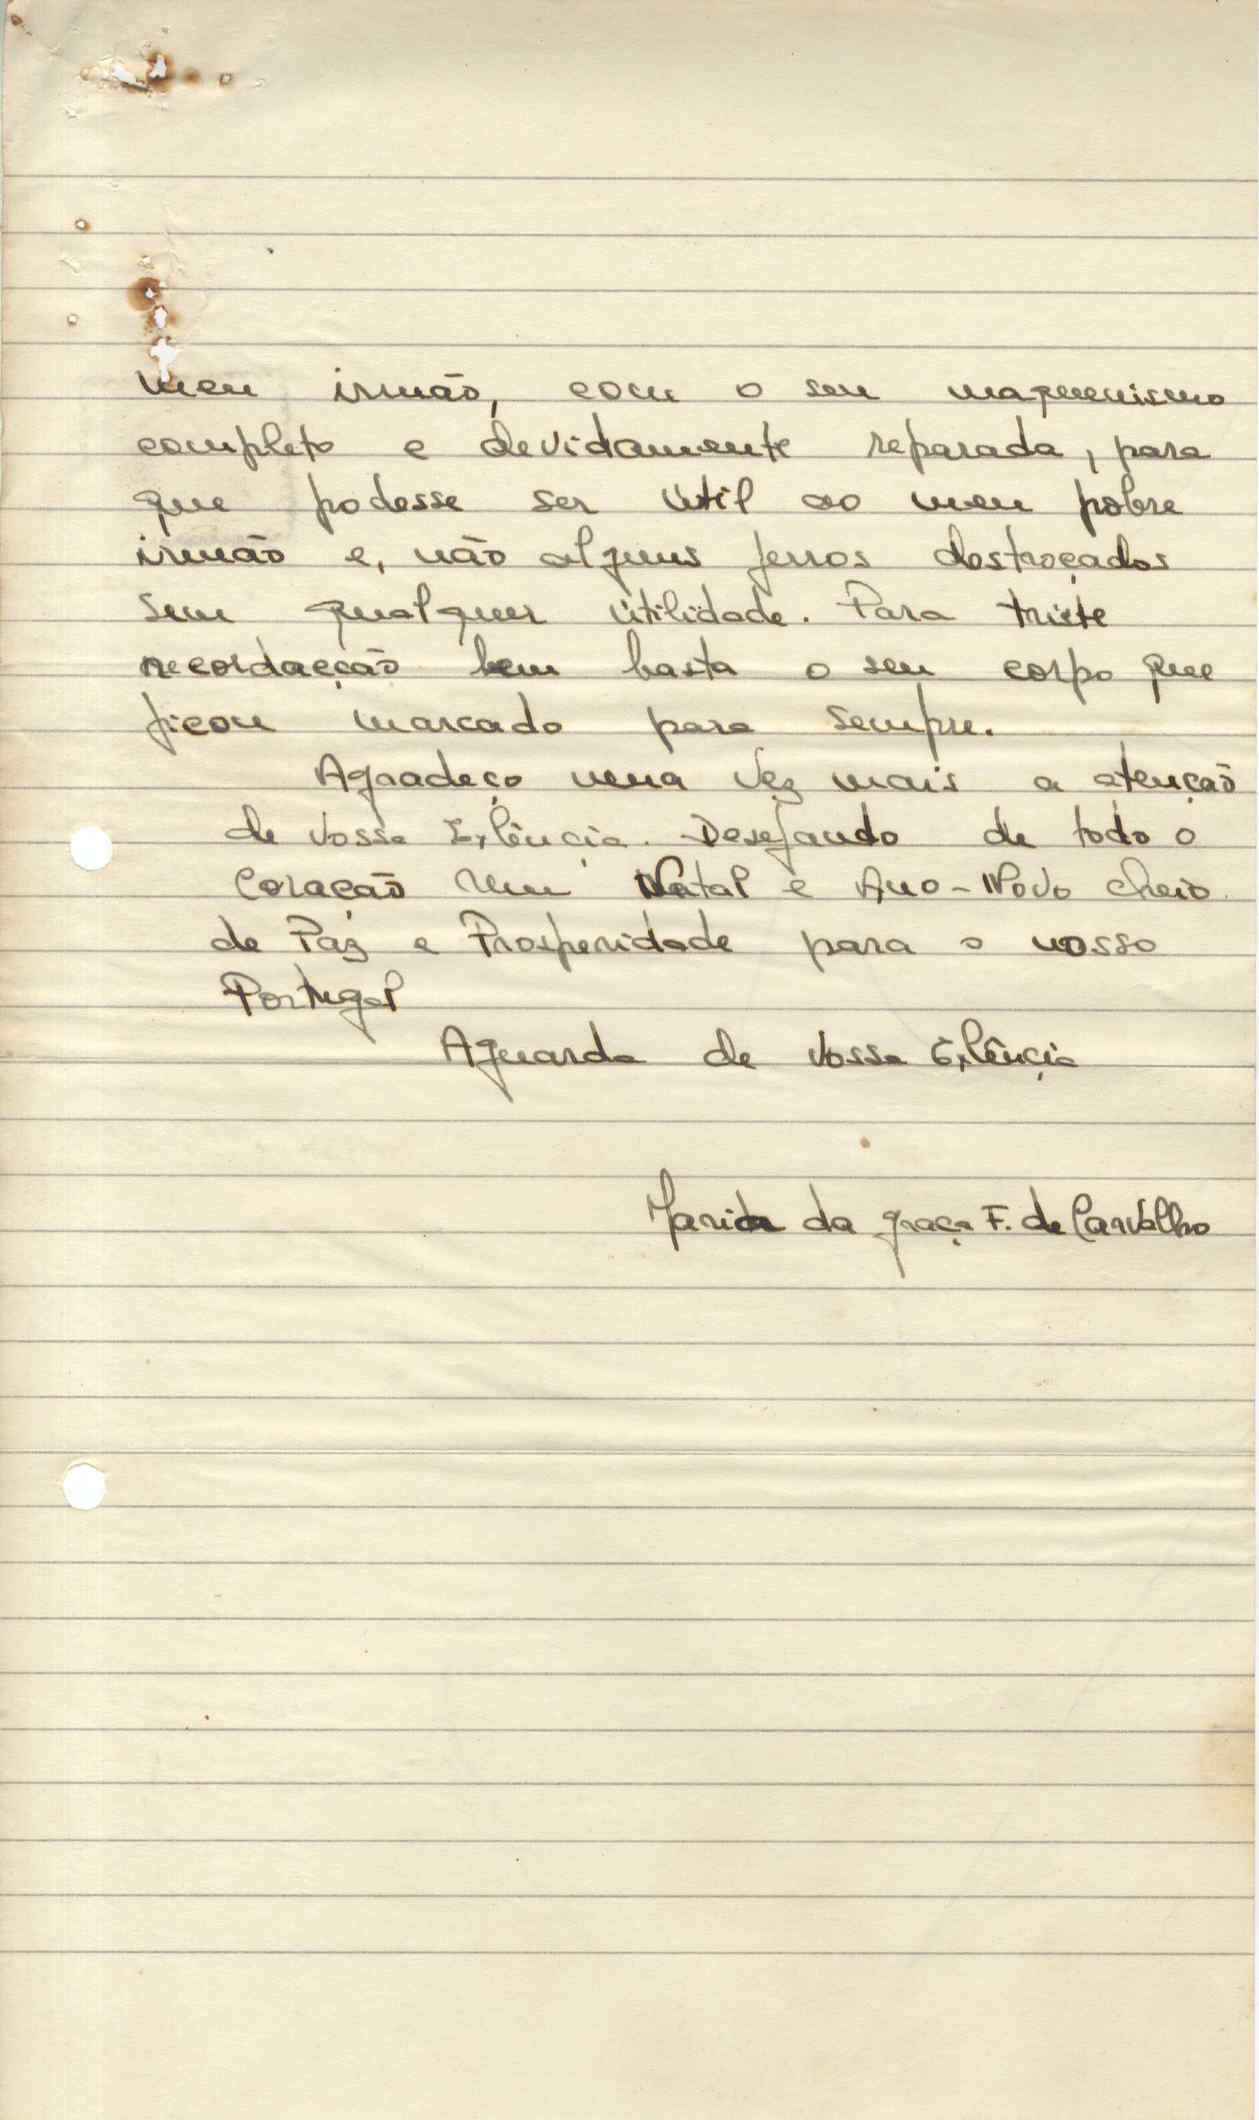 meu irmão, com o seu maquenismo
completo e devidamente reparada, para
que podesse ser útil ao meu pobre
irmão e, não alguns ferros destroçados
sem qualquer útilidade. Para triste
recordacção bem basta o seu corpo que
ficou marcado para sempre.
Agradeço uma vez mais a atenção
de Vossa Exlência. Desejando de todo o
Coração um Natal e Ano-Novo cheio
de Paz e Prosperidade para o nosso
Portugal
Aguarda de Vossa Exlência
Maria da Graça F. de Carvalho